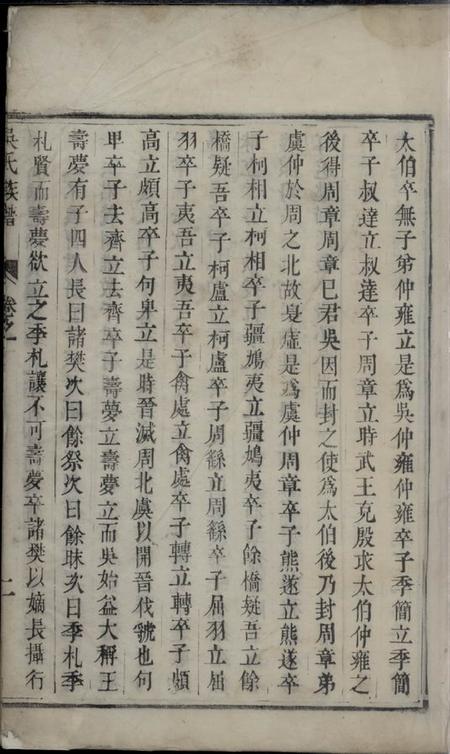 太伯卒無子弟仲雍立是爲吳仲雍仲雍卒子季簡立季簡
卒子叔達立叔達卒子周章立時武王克殷求太伯仲雍之
後得周章周章已君吳因而封之使爲太伯後乃封周章弟
虞仲於周之北故夏墟是爲虞仲周章卒子熊遂立熊遂卒
子柯相立柯相卒子彊鳩夷立彊鳩夷卒子餘橋疑吾立餘
橋疑吾卒子柯盧立柯盧卒子周繇立周繇卒子屈羽立屈
羽卒子夷吾立夷吾卒子禽處立禽處卒子轉立轉卒子頗
高立頗高卒子句卑立是時晉滅周北虞以開晉伐虢也句
卑卒子去齊立去齊卒子壽夢立壽夢立而吳始益大稱王
壽夢有子四人長曰諸樊次曰餘祭次曰餘昧次曰季札季
札賢而壽夢欲立之季札讓不可壽夢卒諸樊以嫡長攝行
吳氏族譜 卷之一 二